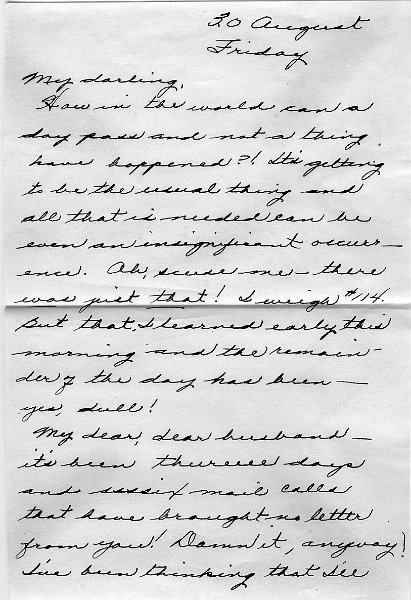 30 August
Friday
My darling,
How in the world can a
day pass and not a thing
have happened?! It's getting
to be the usual thing and
all that is needed can be
even an insignificant occurr-
ence. Oh, scuse me — there
was just that! I weigh #114.
But that, I learned early this
morning and the remain-
der of the day has been —
yes, dull!
My dear, dear husband —
it's been thureeee days
and ssssix mail calls
that have brought no letter
from you! Damn it, anyway!
I've been thinking that I'll